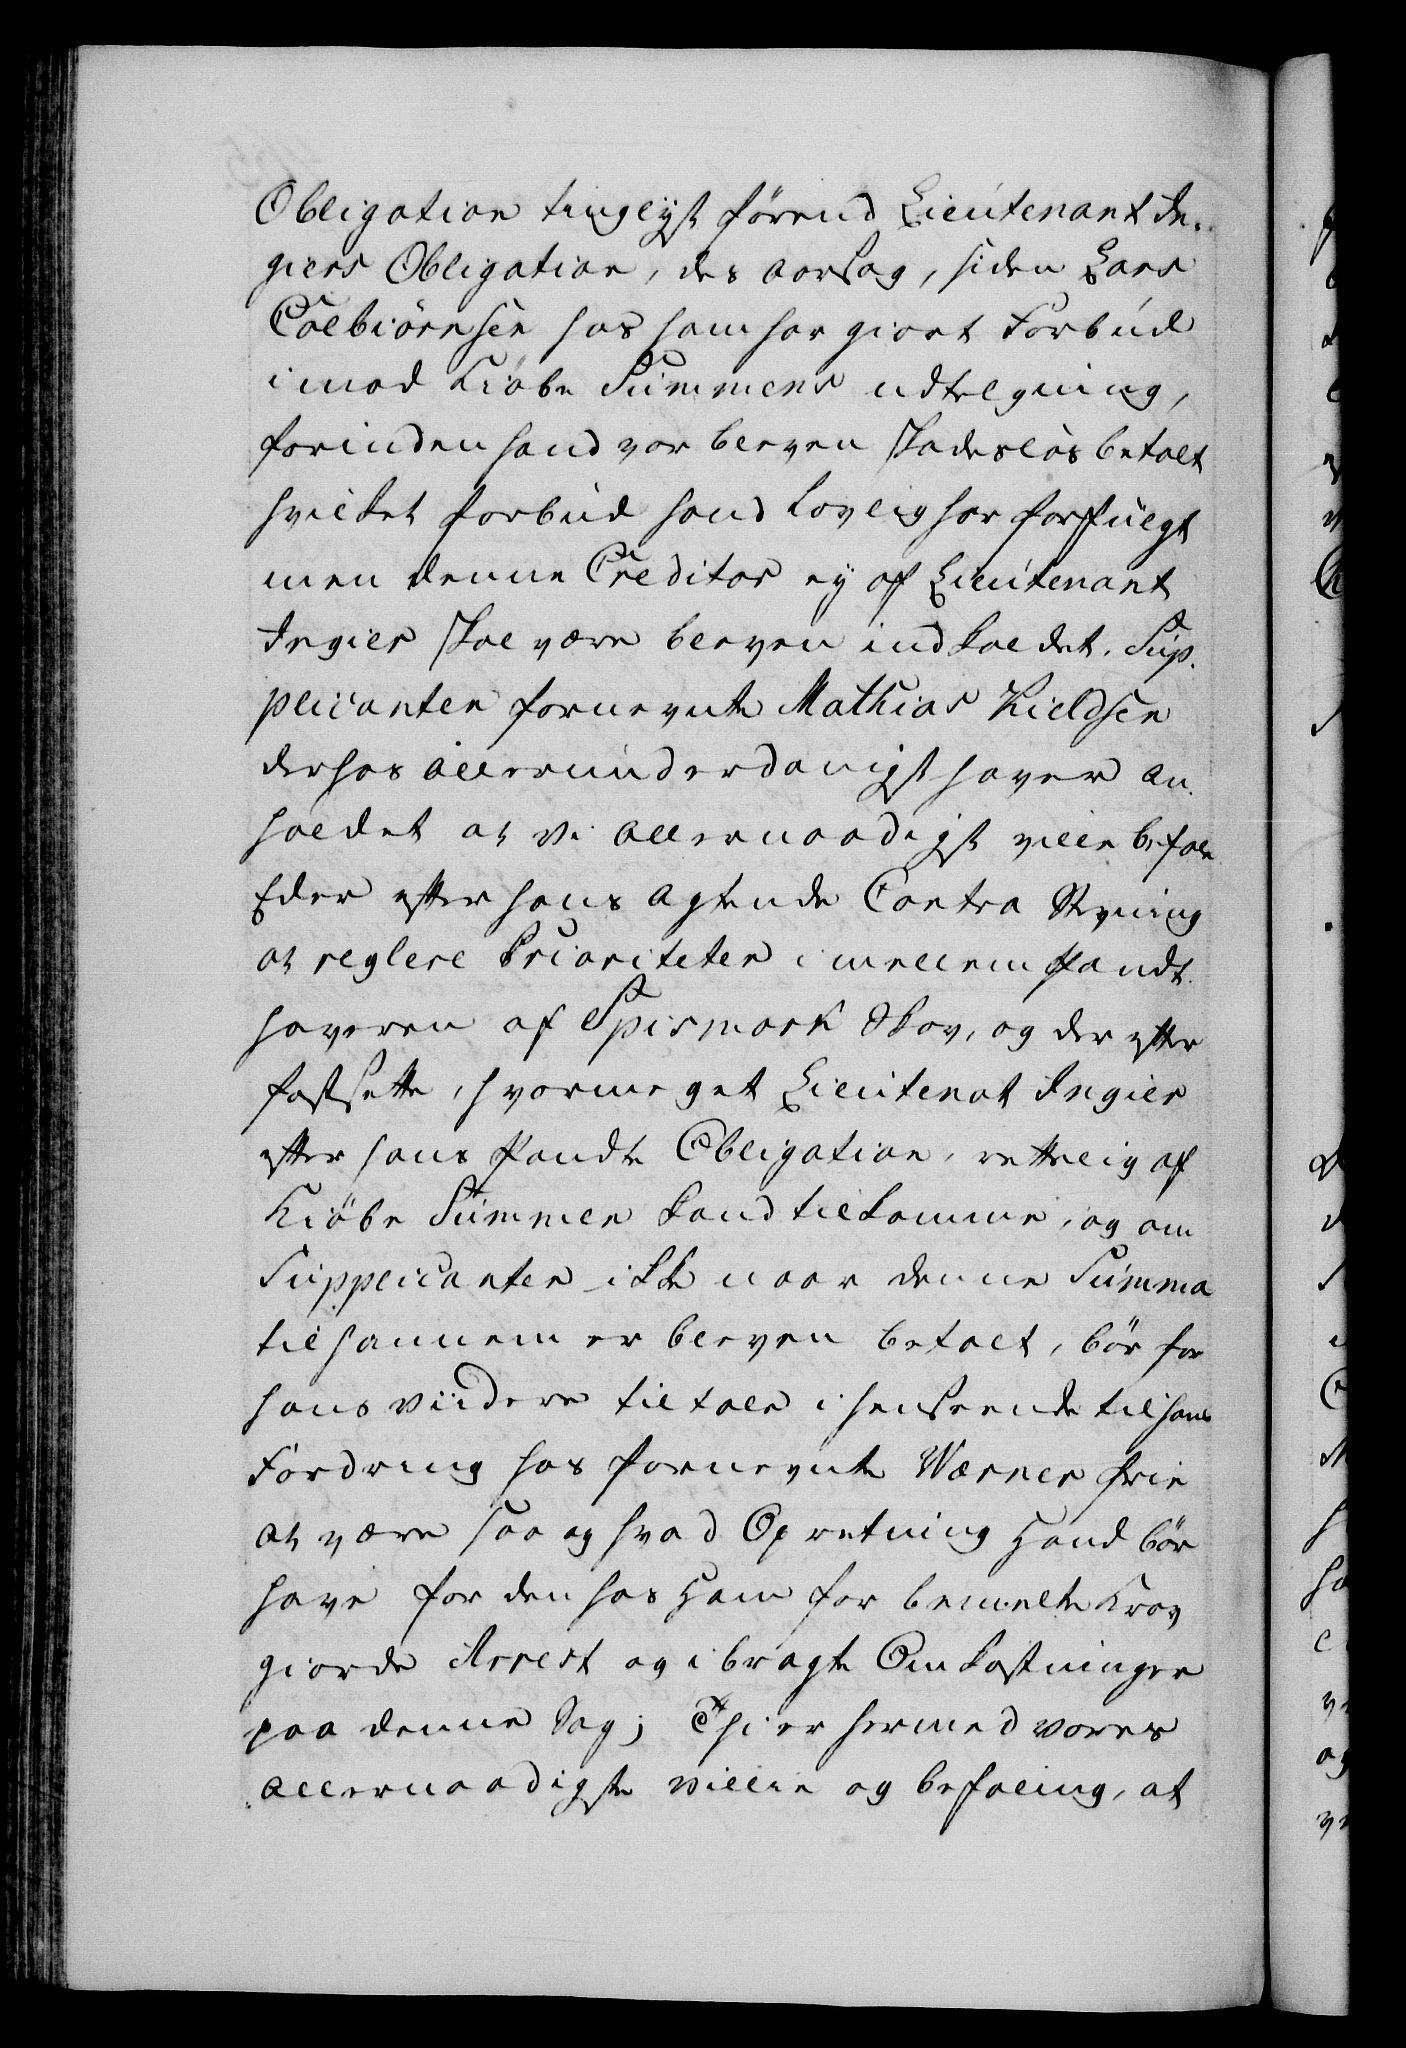 Obligation tinglyst förend Lieutenant In-
giers Obligation, des aarsag, siden Lars
Colbiörnsen hos ham har giort Forbud
imod Kiöbe Summens udtelgning,
forinden hand var bleven skadeslös betalt
hvilket forbud hand lovlig har forfulgt
men denne Creditor ey af Lieutenant
Ingier skal være bleven indkaldet. Sup-
plicanten fornevnte Mathias Kieldsen
derhos allerunderdanigst haver an-
holdet at vi allernaadigst ville befale
Eder efter hans agtende Contra Stevning
at reglere Prioriteten imellem Pandt-
haveren af Spismark Skov, og der efter
fastsette, hvormeget Lieutenat Ingier
efter hans Pandte Obligation, rettelig af
Kiöbe Summen kand tilkomme, og om
Supplicanten ikke naar denne Summa
til hannem er bleven betalt, bör for
hans viidere tiltale i henseende til hans
Fordring hos fornevnte Wærner frie
at være saa og hvad Opretning Hand bör
have for den hos Ham for bemelte Krav
giorde Arrest og ibragte Omkostninger
paa denne Sag; Thi er hermed vores
allernaadigste villie og befaling, at